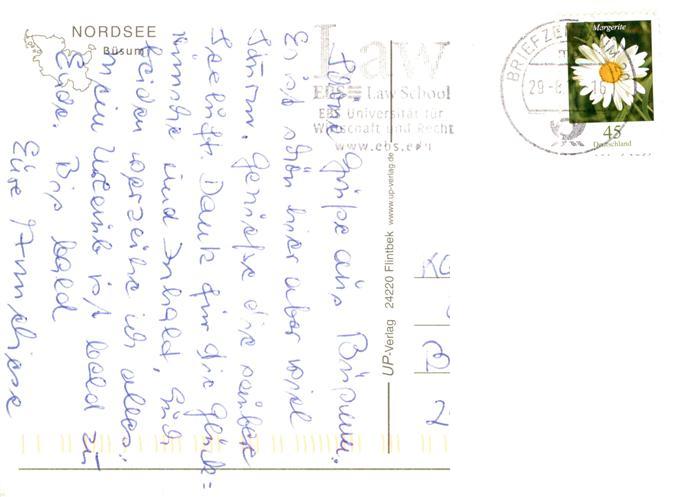 NORDSEE
Büsum
Schöne Grüße aus Büsum.
Es ist schön hier aber viel
Sturm. Genieße die saubere
Seeluft. Dank für die Glück=
wünsche und Inhalt, Euch
beiden verzeihe ich alles.
Mein Urlaub ist bald zu
Ende. Bis bald
Eure Anneliese
Law
EBS Law School
EBS Universität für
Wirtschaft und Recht
www.ebs.edu
UP-Verlag 24220 Flintbek www.up-verlag.de
BRIEFZENTRUM
29-8.
16
Margerite
45
Deutschland